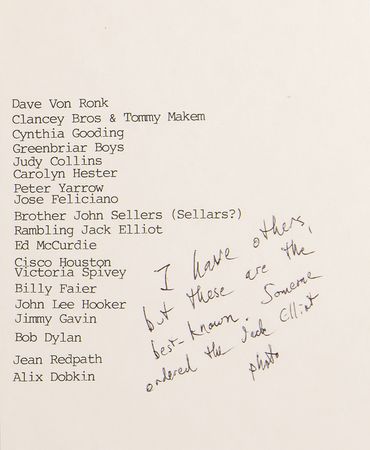 Dave Von Ronk
Clancey Bros & Tommy Makem
Cynthia Gooding
Greenbriar Boys
Judy Collins
Carolyn Hester
Peter Yarrow
Jose Feliciano
Brother John Sellers (Sellars?)
Rambling Jack Elliot
Ed McCurdie
Cisco Houston
Victoria Spivey
Billy Faier
John Lee Hooker
Jimmy Gavin
Bob Dylan
Jean Redpath
Alix Dobkin
I have others,
but these are the
best-known. Someone
ordered the Jack Elliot
photo